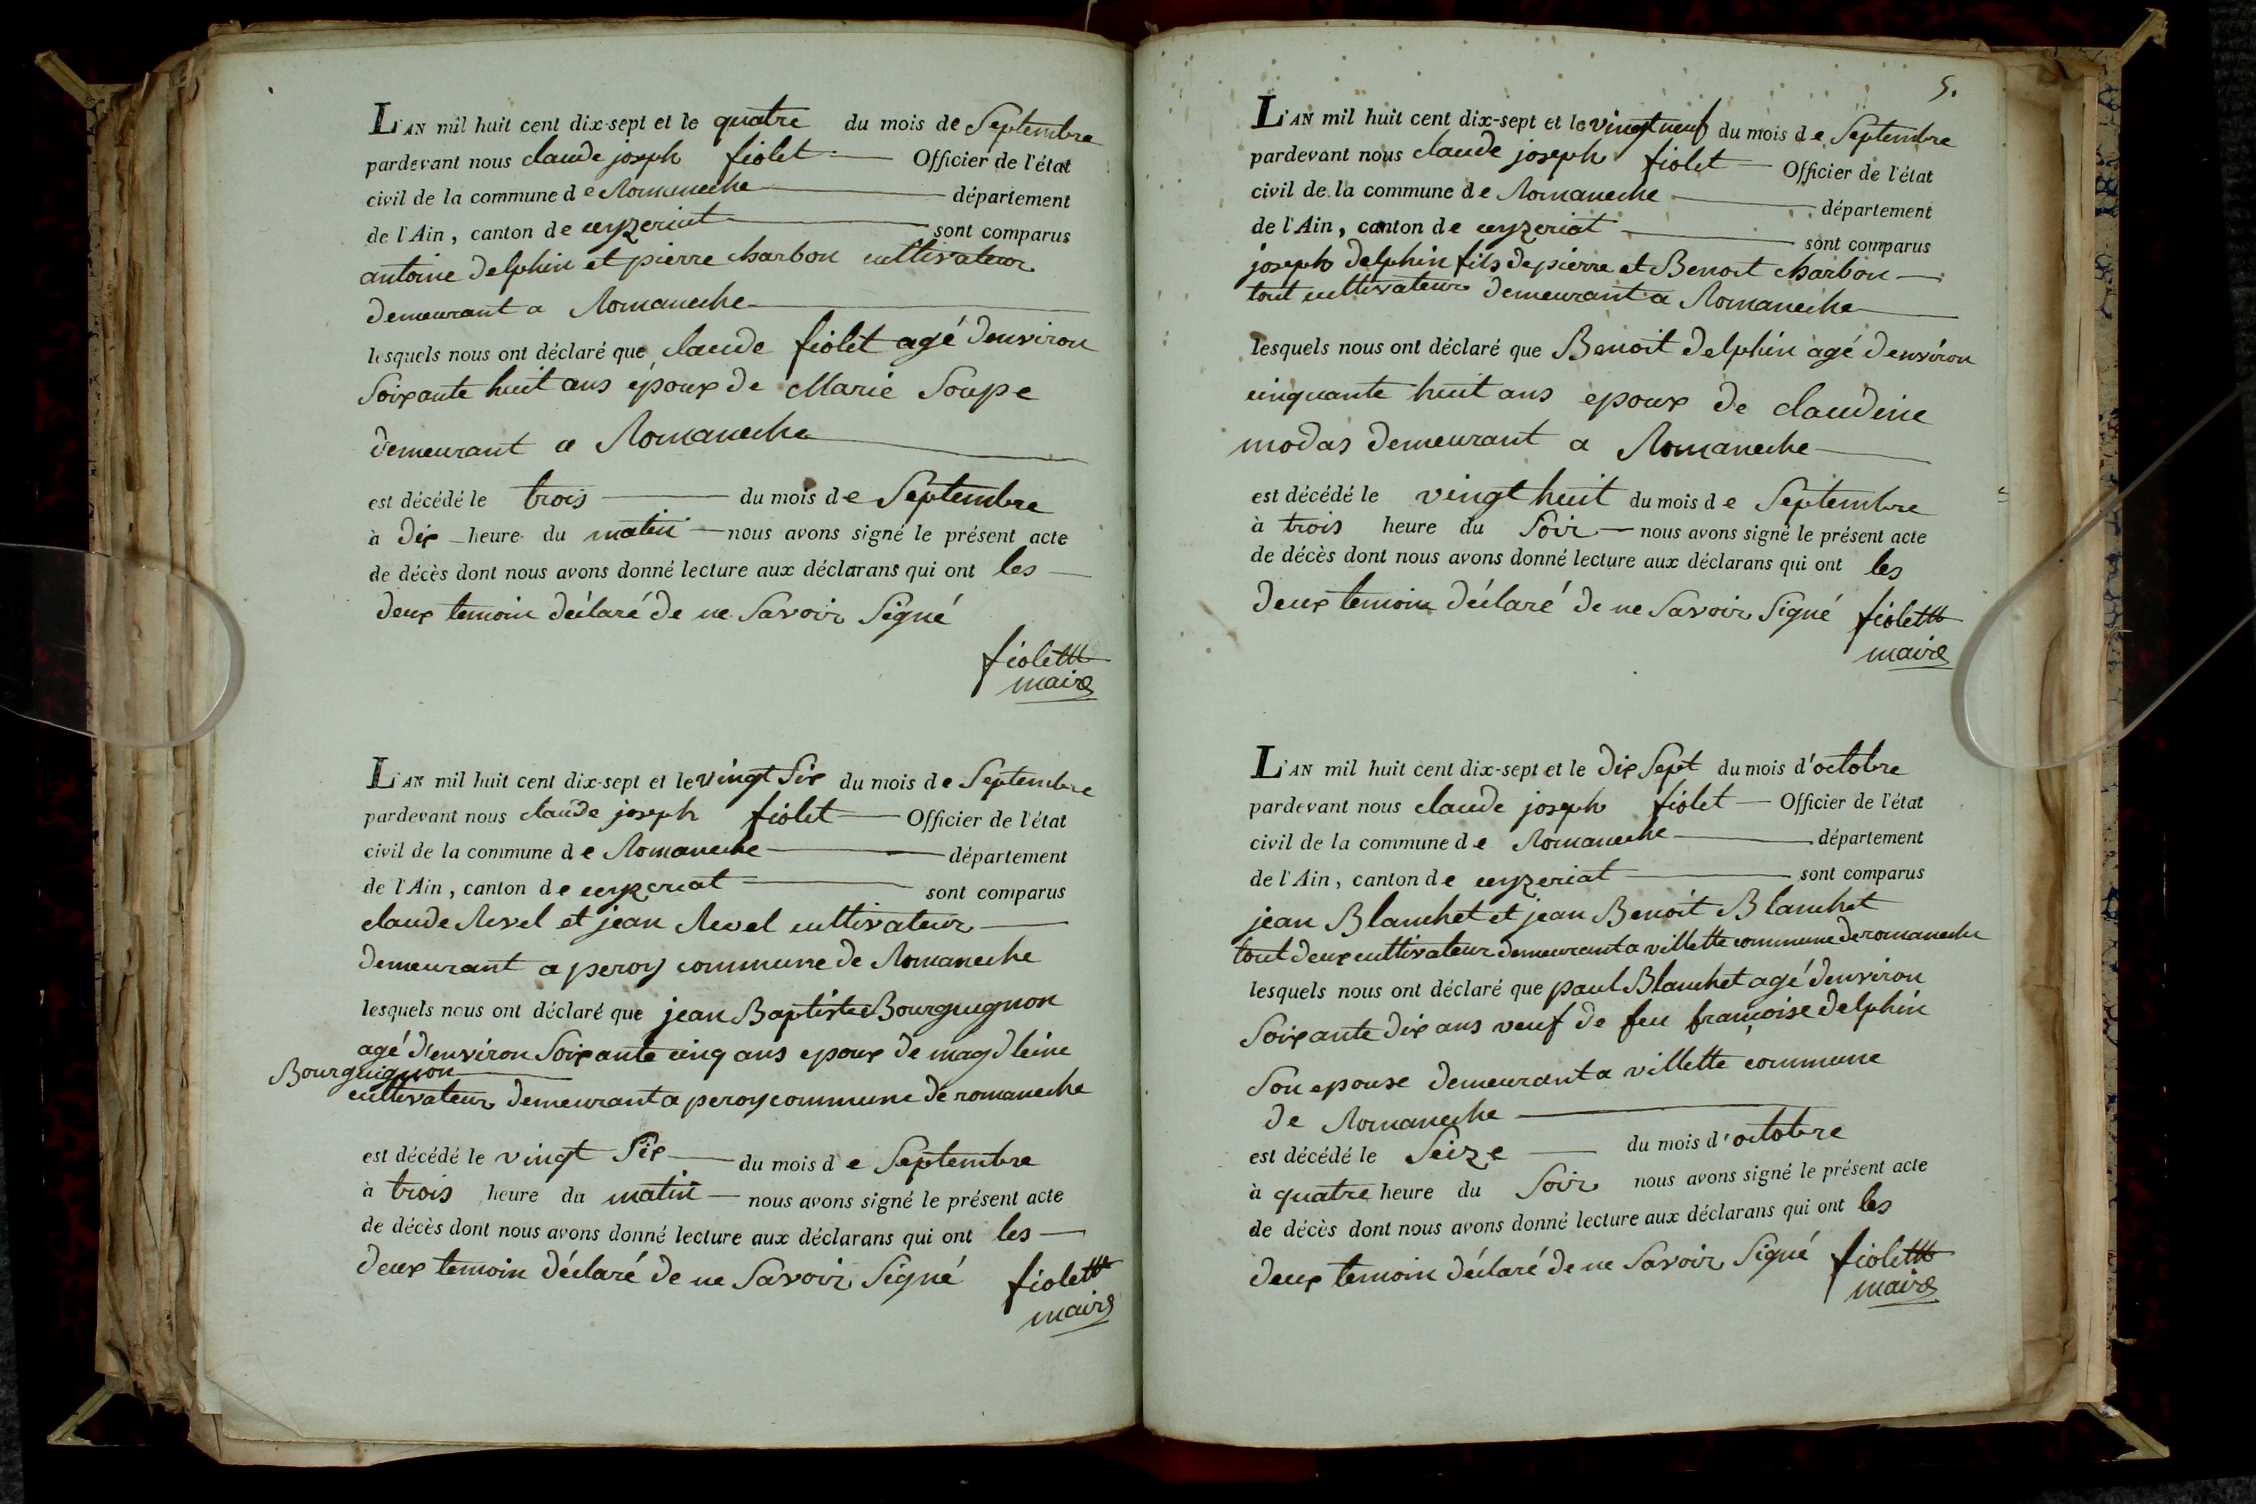 L'AN mil huit cent dix-sept et le quatre du mois de Septembre
pardevant nous claude joseph fiolet Officier de l'état
civil de la commune de Romaneche département
de l'Ain, canton de ceyzeriat sont comparus
antoine delphin et pierre charbon cultivateur
demeurant a Romaneche
lesquels nous ont déclaré que claude fiolet agé denviron
Soixante huit ans époux de Marie Soupe
demeurant a Romaneche
est décédé le trois du mois de Septembre
à dix heure du matin nous avons signé le présent acte
de décès dont nous avons donné lecture aux déclarans qui ont les
deux temoin déclaré de ne Savoir Signé
fiolet
maire
L'AN mil huit cent dix-sept et le vingt Six du mois de Septembre
pardevant nous claude joseph fiolet Officier de l'état
civil de la commune de Romaneche département
de l'Ain, canton de ceyzeriat sont comparus
claude Revel et jean Revel cultivateur
demeurant a peroy commune de Romaneche
lesquels nous ont déclaré que jean Baptiste Bourguignon
agé d'environ Soixante cinq ans epoux de magdleine
Bourguignon
cultivateur demeurant a peroy commune de romaneche
est décédé le vingt Six du mois de Septembre
à trois heure du matin nous avons signé le présent acte
de décès dont nous avons donné lecture aux déclarans qui ont les
deux temoin déclaré de ne Savoir Signé fiolet
maire
5.
L'AN mil huit cent dix-sept et le vingt neuf du mois de Septembre
pardevant nous claude joseph fiolet Officier de l'état
civil de la commune de Romaneche département
de l'Ain, canton de ceyzeriat sont comparus
joseph delphin fils de pierre et Benoit charbon
tout cultivateur demeurant a Romaneche
lesquels nous ont déclaré que Benoit delphin agé d'environ
cinquante huit ans epoux de claudine
modas demeurant a Romaneche
est décédé le vingt huit du mois de Septembre
à trois heure du Soir nous avons signé le présent acte
de décès dont nous avons donné lecture aux déclarans qui ont les
deux temoin déclaré de ne Savoir Signé fiolet
maire
L'AN mil huit cent dix-sept et le dix Sept du mois d'octobre
pardevant nous claude joseph fiolet Officier de l'état
civil de la commune de Romaneche département
de l'Ain, canton de ceyzeriat sont comparus
jean Blanchet et jean Benoit Blanchet
tout deux cultivateur demeurant a villette commune de romaneche
lesquels nous ont déclaré que paul Blanchet agé denviron
Soixante dix ans veuf de feu françoise delphin
Son epouse demeurant a villette commune
de Romaneche
est décédé le Seize du mois d'octobre
à quatre heure du Soir nous avons signé le présent acte
de décès dont nous avons donné lecture aux déclarans qui ont les
deux temoin déclaré de ne Savoir Signé fiolet
maire